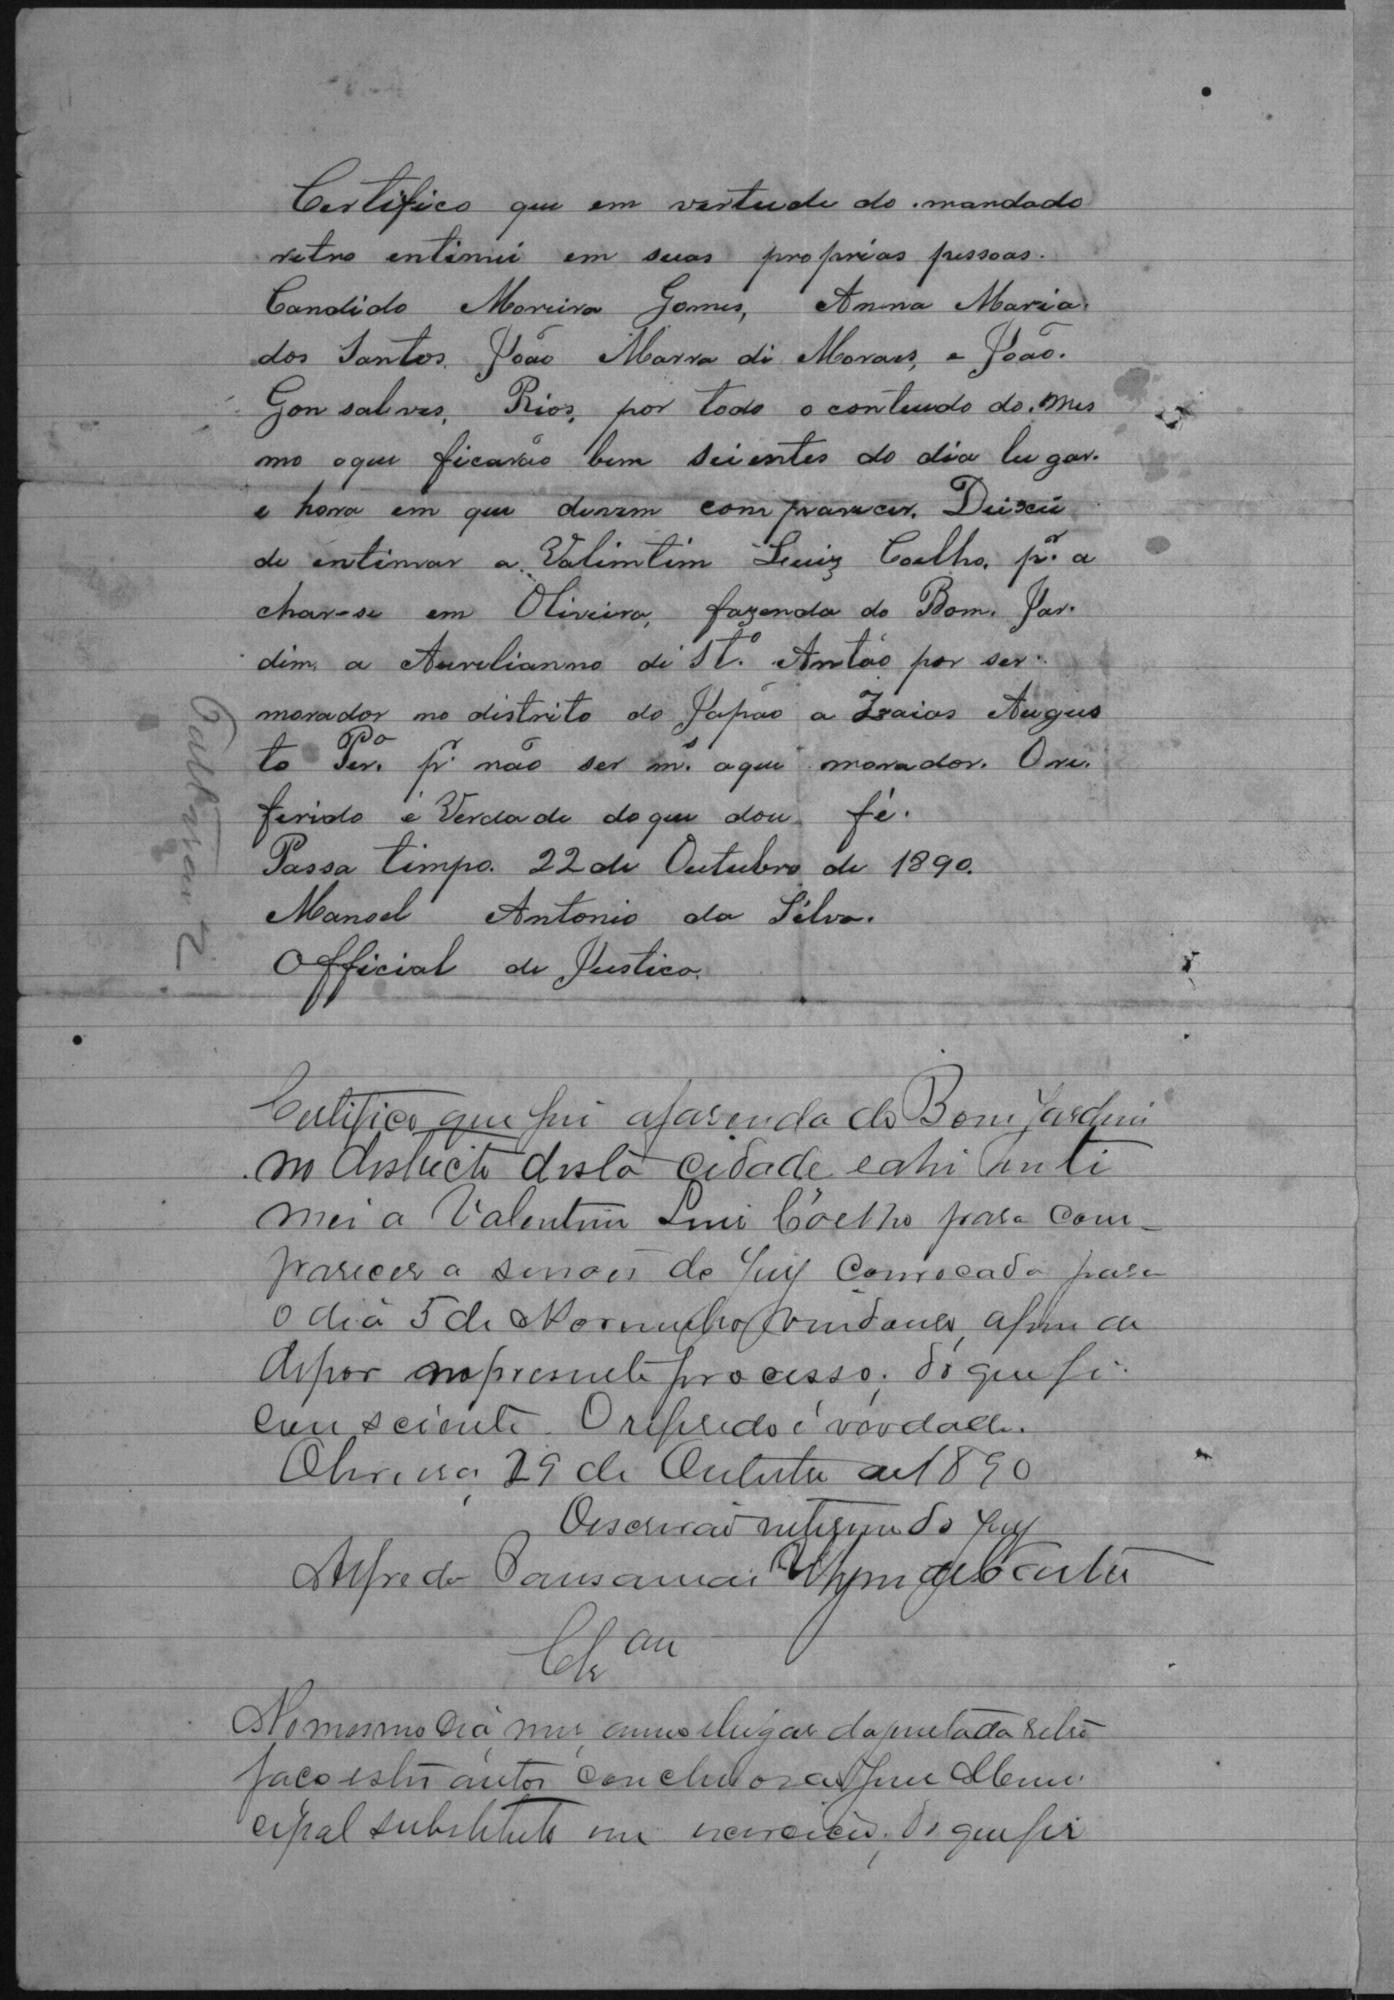 Certifico que em vertude do mandado
retro entimei em suas proprias pessoas.
Candido Moreira Gomes, Anna Maria
dos Santos, João Marra di Moraes, e João.
Gonsalves, Rios, por todo o conteudo do mes
mo oque ficarão bem seientes do dia lugar.
e hora em que devem comparecer. Deixei
de entimar a Valimtim Luiz Coelho, pr. a
char-se em Oliveira, fazenda do Bom Jar.
dim, a Aurelianno di Sto. Antão por ser
morador no distrito do Japão a Izaias Augus
to Perª. pr. não ser ms. aqui morador. O re.
ferido é Verdade do que dou fé.
Passa timpo. 22 de Outubro de 1890.
Manoel Antonio da Silva.
Official de Justica.
Certifico que fui afasenda do Bom Jardim
no destricto desta cidade e ahi inti
mei a Valentim Luis Coelho para com-
parecer a sessão do Jury convocada para
o dia 5 de Novembro vindouro, afim de
depor no presente processo; do que fi
cou sciente. O referido é verdade.
Oliveira, 29 de Outubro de 1890
O escrivão interino do Jury
Alfredo
Clsam
No mesmo dia, mes, anno e lugar da retro
faço estes autos conclusos ao Juiz Muni
cipal substituto em exercicio; do que fis